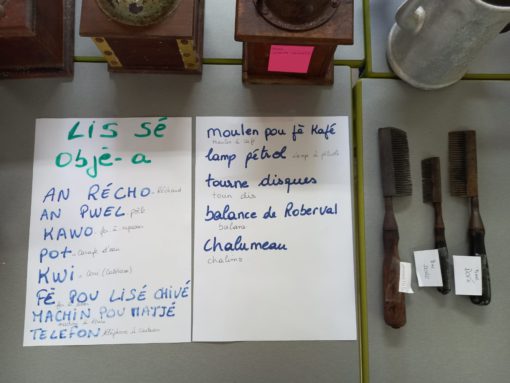 Lis sé
objè-a
AN RÉCHO Réchaud
AN PWEL poêle
KAWO fer à repasser
pot carafe d'eau
Kwi Coui (calebasse)
FÈ POU LISÉ CHIVÉ
MACHIN POU MATJÉ
TELEFON téléphone à cadran
moulen pou fè Kafé
Moulin à café
lamp pétrol lampe à pétrole
tourne disques
toun dis
balance de Roberval
balans
Chalumeau
chalimo